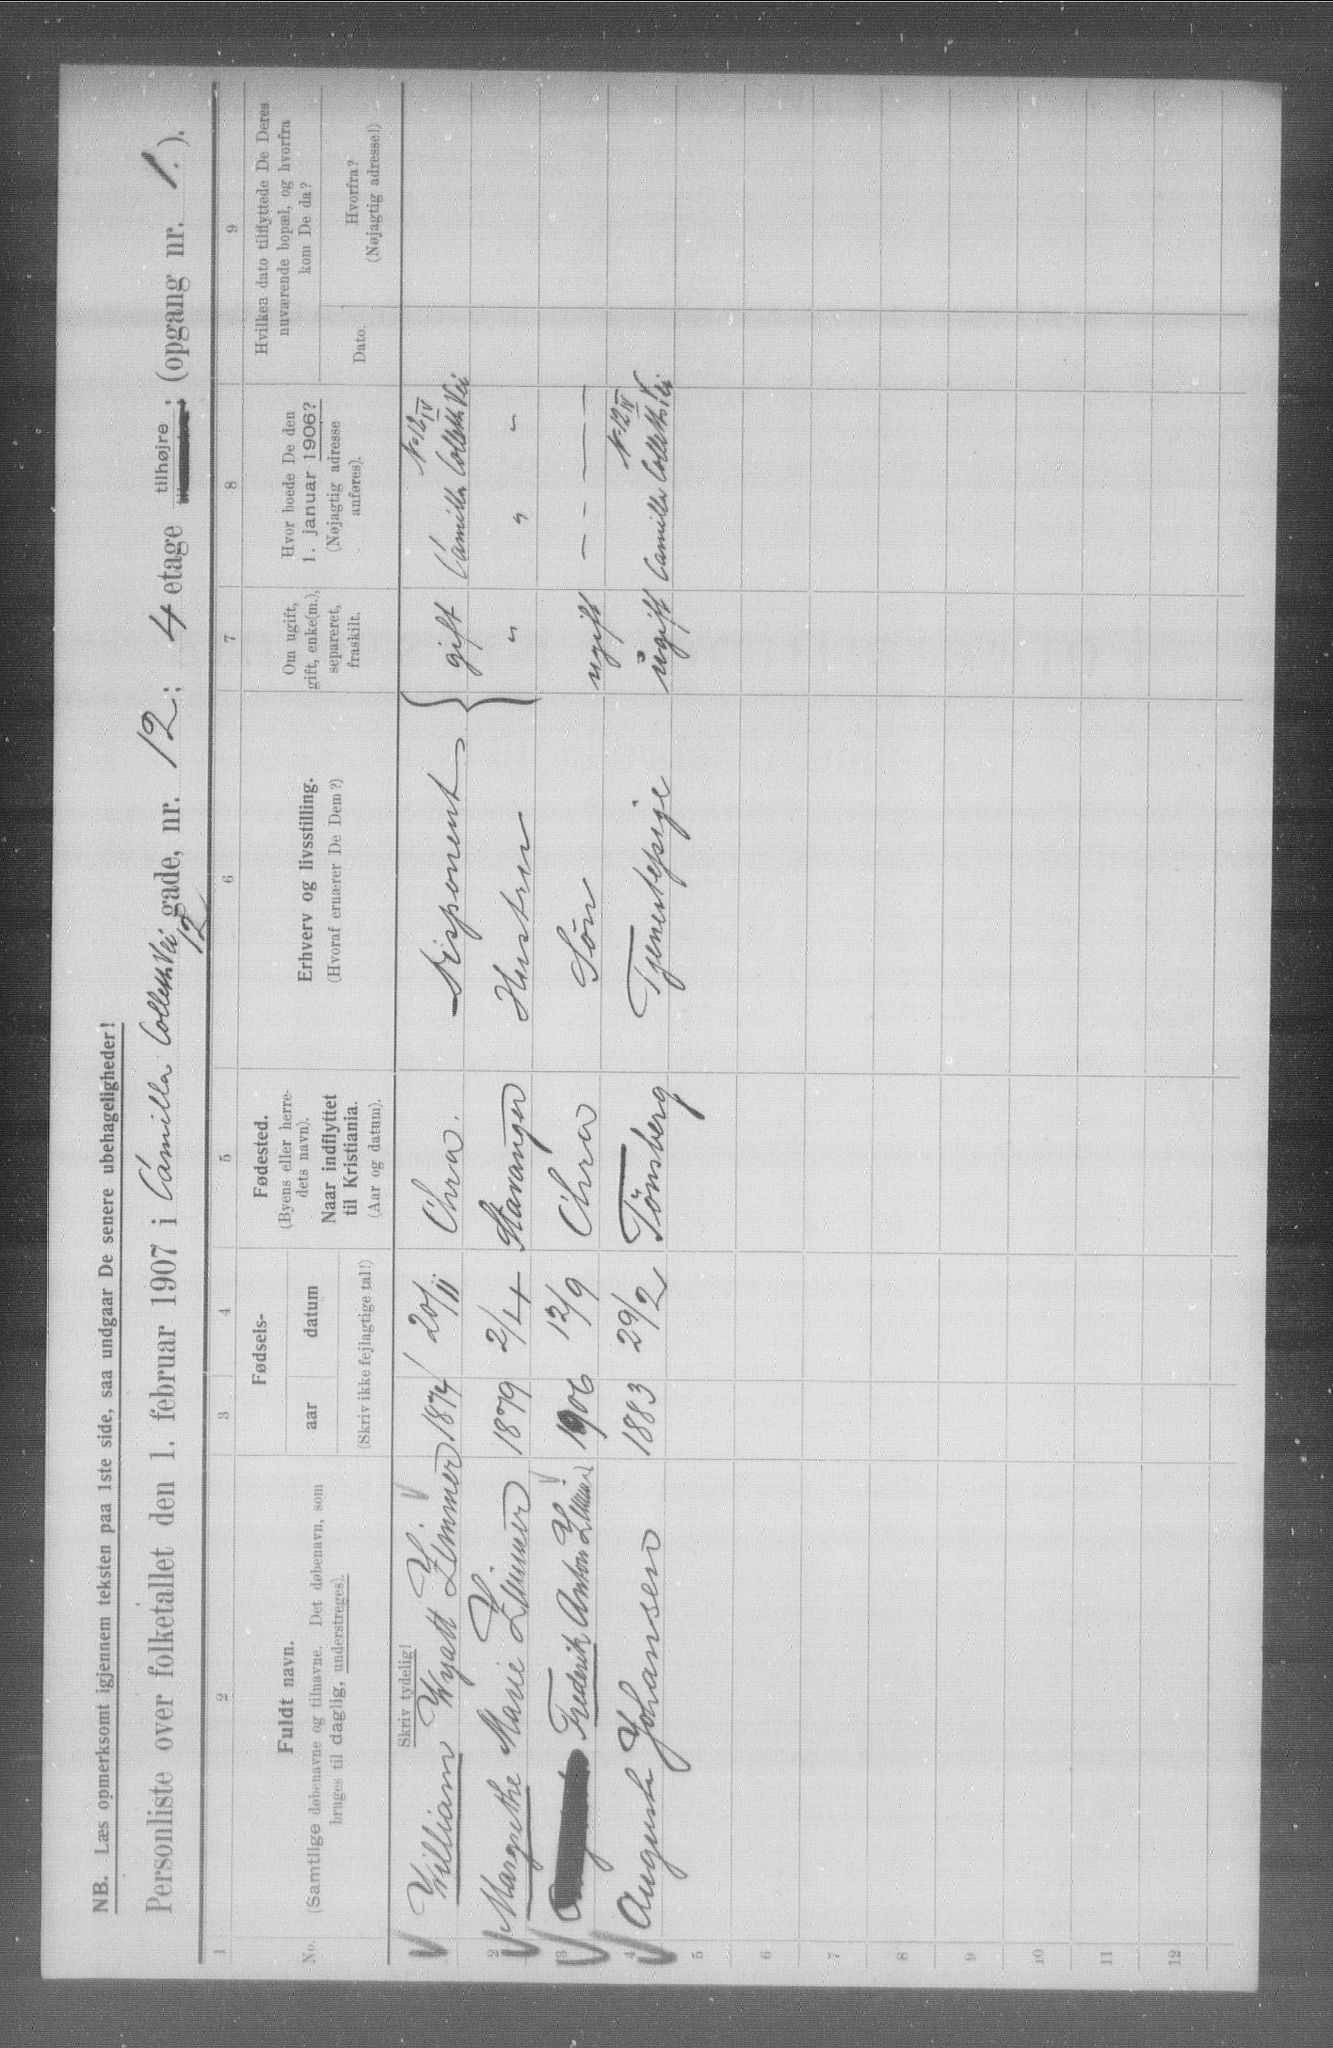 NB. Læs opmerksomt igjennem teksten paa 1ste side, saa undgaar De senere ubehageligheder!
Personliste over folketallet den 1. februar 1907 i Camilla Colletts Vei gade, nr. 12; 4 etage tilhøjre; (opgang nr. 1.).
12
1 2 3 4 5 6 7 8 9
No.
Fuldt navn.
(Samtlige døbenavne og tilnavne. Det døbenavn, som
bruges til daglig, understreges).
Skriv tydelig!
Fødsels-
aar datum
(Skriv ikke fejlagtige tal!)
Fødested.
(Byens eller herre-
dets navn).
Naar indflyttet
til Kristiania.
(Aar og datum).
Erhverv og livsstilling.
(Hvoraf ernærer De Dem?)
Om ugift,
gift, enke(m.),
separeret,
fraskilt.
Hvor boede De den
1. januar 1906?
(Nøjagtig adresse
anføres).
Hvilken dato tilflyttede De Deres
nuværende bopæl, og hvorfra
kom De da?
Dato.
Hvorfra?
(Nøjagtig adresse!)
William Wyatt Zimmer 1874 20/11 Chra. Disponent gift Camilla Colletts Vei N-12 IV
2 Margrethe Marie Zimmer 1879 2/4 Stavanger Hustru " " "
3 Frederik Anton Zimmer 1906 12/9 Chra Søn ugift — - — — —
4 Augusta Johansen 1883 29/2 Tönsberg Tjenestepige ugift Camilla Colletts Vei N-12 IV
5
6
7
8
9
10
11
12